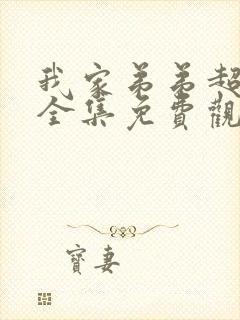 我家弟弟超
全集免費觀
寶妻